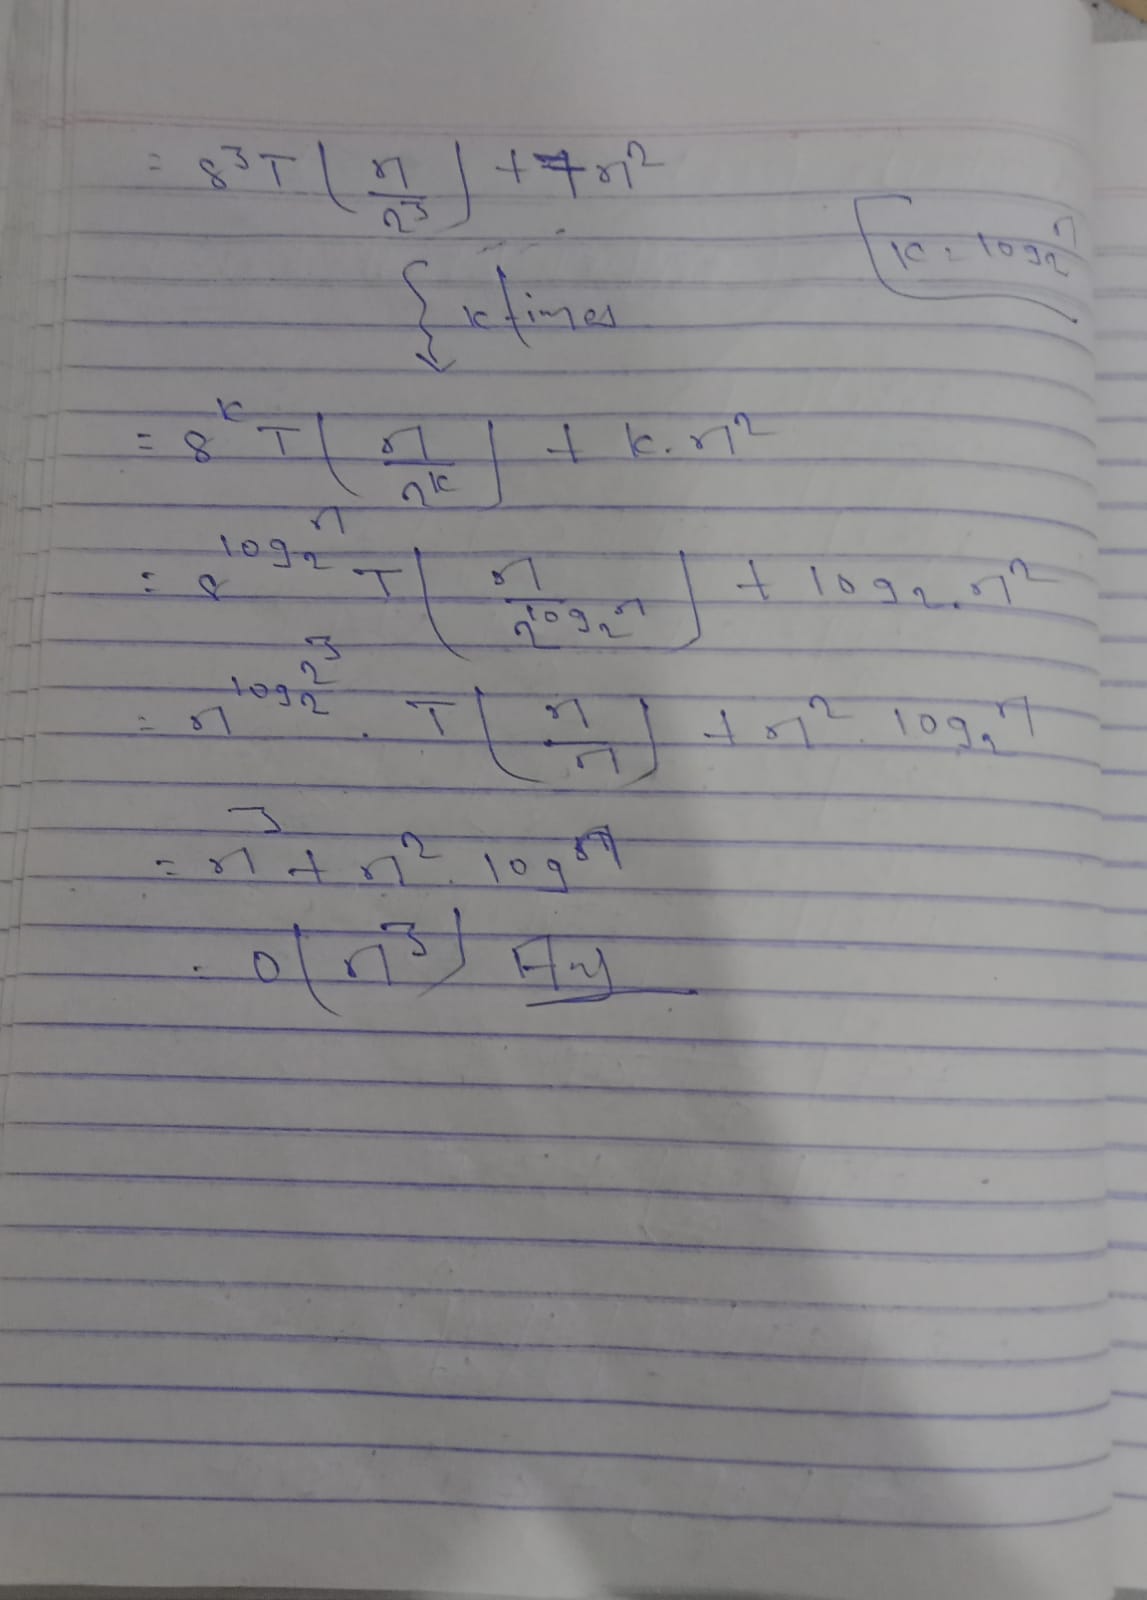 = 8³T(n/2³) + 7n²
k = log₂ⁿ
k times
= 8ᵏ T(n/2ᵏ) + k.n²
= 8^log₂ⁿ T(n/2^log₂ⁿ) + log₂.n²
= n^log₂2³ . T(n/n) + n². log₂ⁿ
= n³ + n². logⁿ
= O(n³) Ans